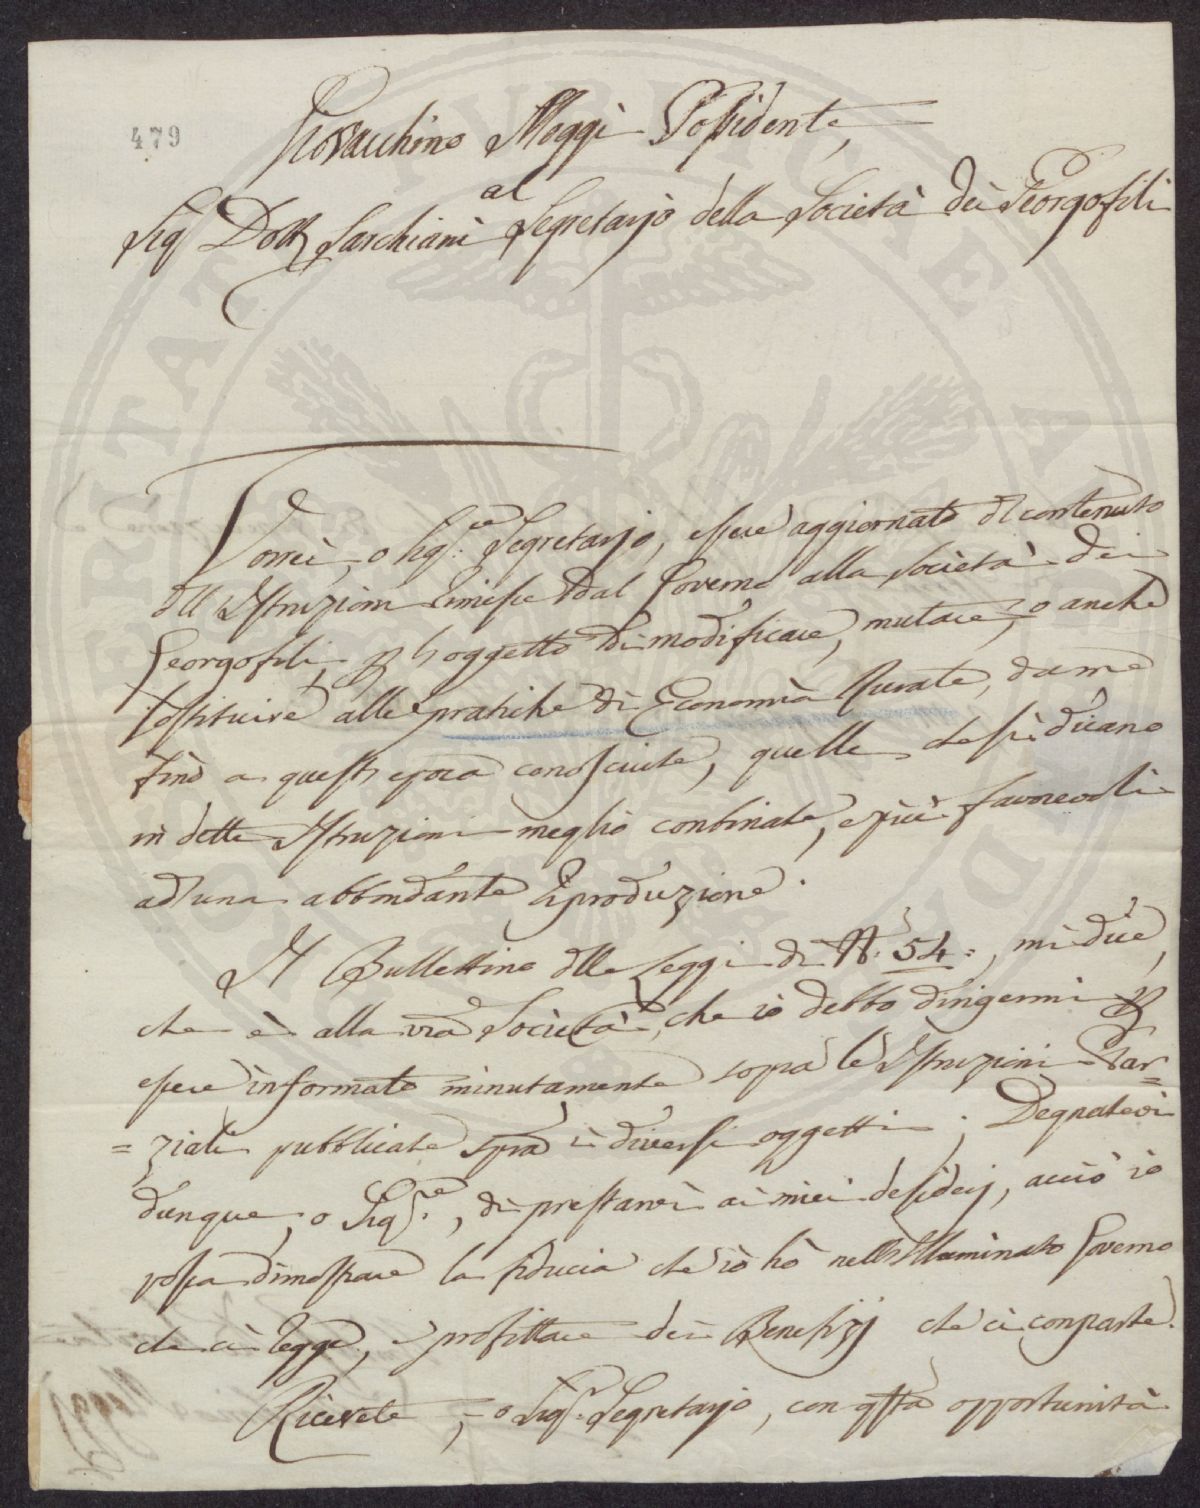 479
Giovacchino Moggi Possidente,
al
Sig Dott Sarchiani Segretarjo della Società dei Georgofili
Vorrei, o Sig.re Segretarjo, essere aggiornato del contenuto
dll Istruzioni Rimesse dal Governo alla Società dei
Georgofili, p l'oggetto di modificare, mutare, o anche
sostituire alle pratiche di Economia Rurale, da me
fino a quest epoca conosciute, quelle che si dicano
in dette Istruzioni meglio conbinate, e più favorevoli
ad una abbondante Riproduzione.
Il Bullettino dlle Leggi di N.° 54:, mi dice,
che è alla vra Società, che io debbo dirigermi p
essere informato minutamente sopra le Istruzioni Par=
=ziali pubblicate sopra i diversi oggetti; Degnatevi
dunque, o Sig.re, di prestarvi ai miei desiderj, acciò io
possa dimostrare la fiducia che io hò nell'Illuminato Governo
che ci Regge, e profittare dei Benefizj che ci conparte.
Ricevete, o Sig.r Segretarjo, con qsta opportunità